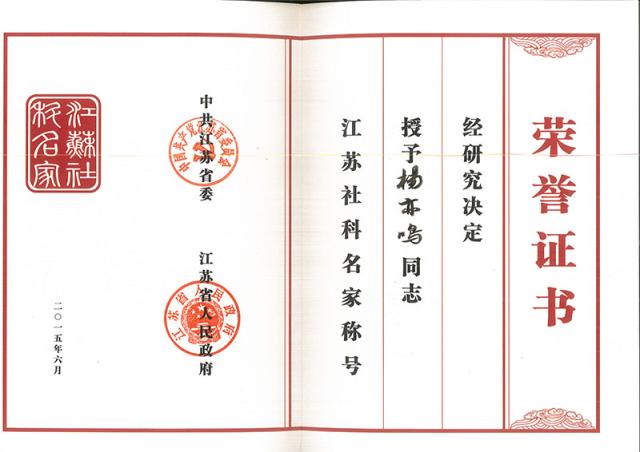 荣誉证书
经研究决定
授予杨亦鸣同志
江苏社科名家称号
中共江苏省委
中国共产党江苏省委员会
江苏省人民政府
江苏省人民政府
二〇一五年六月
江苏社
科名家